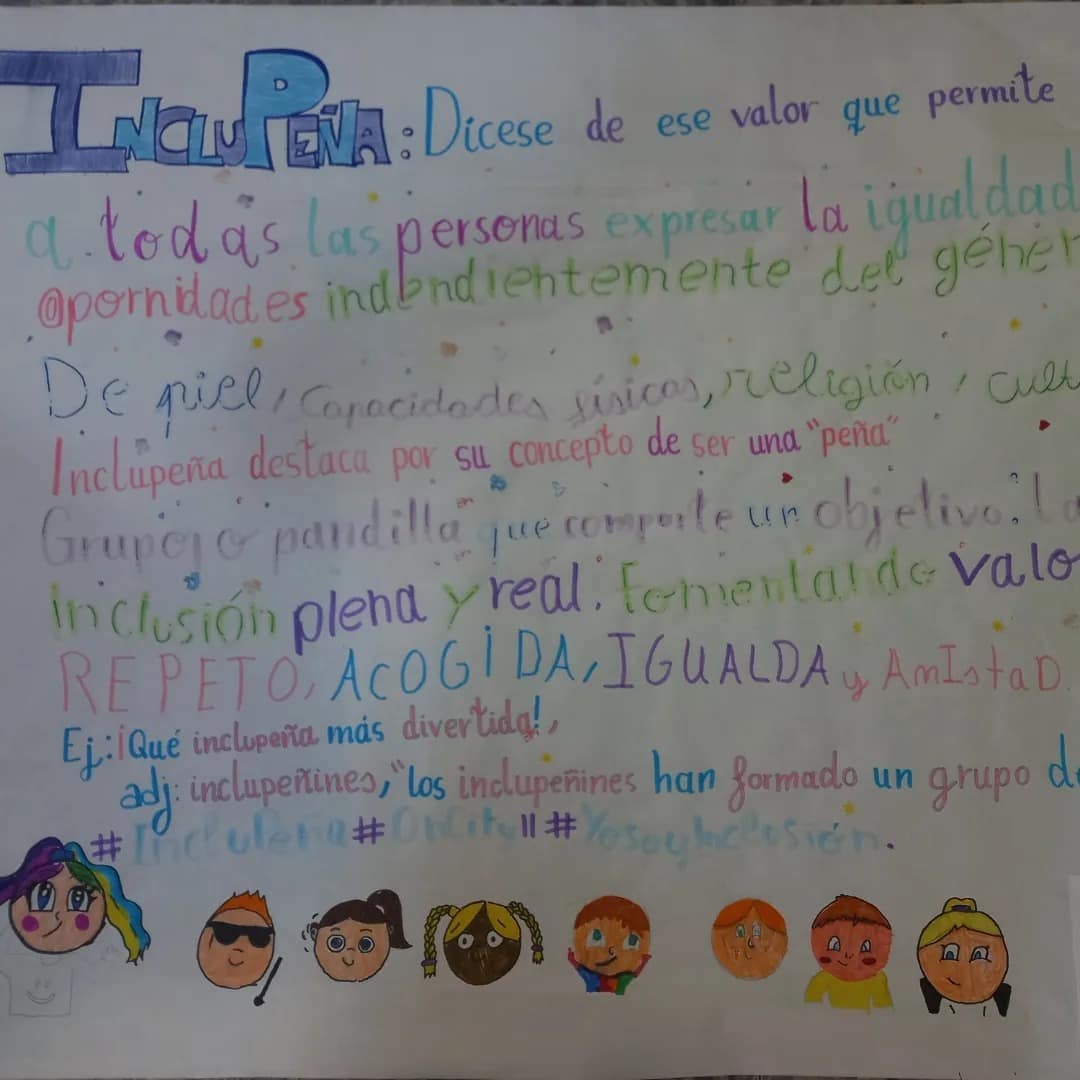 INCLUPEÑA: Dícese de ese valor que permite
a todas las personas expresar la igualdad
@pornidades indendientemente del géner
De piel, capacidades físicas, religión, cult
Inclupeña destaca por su concepto de ser una "peña"
Grupo, o pandilla" que comparte un objetivo: la
inclusión plena y real. Fomentando valo
REPETO, ACOGIDA, IGUALDA y AmIstaD.
Ej.: ¡Qué inclupeña más divertida!,
adj: inclupeñines, "los inclupeñines han formado un grupo de
#Inclupeña # # YosoyInclusión.